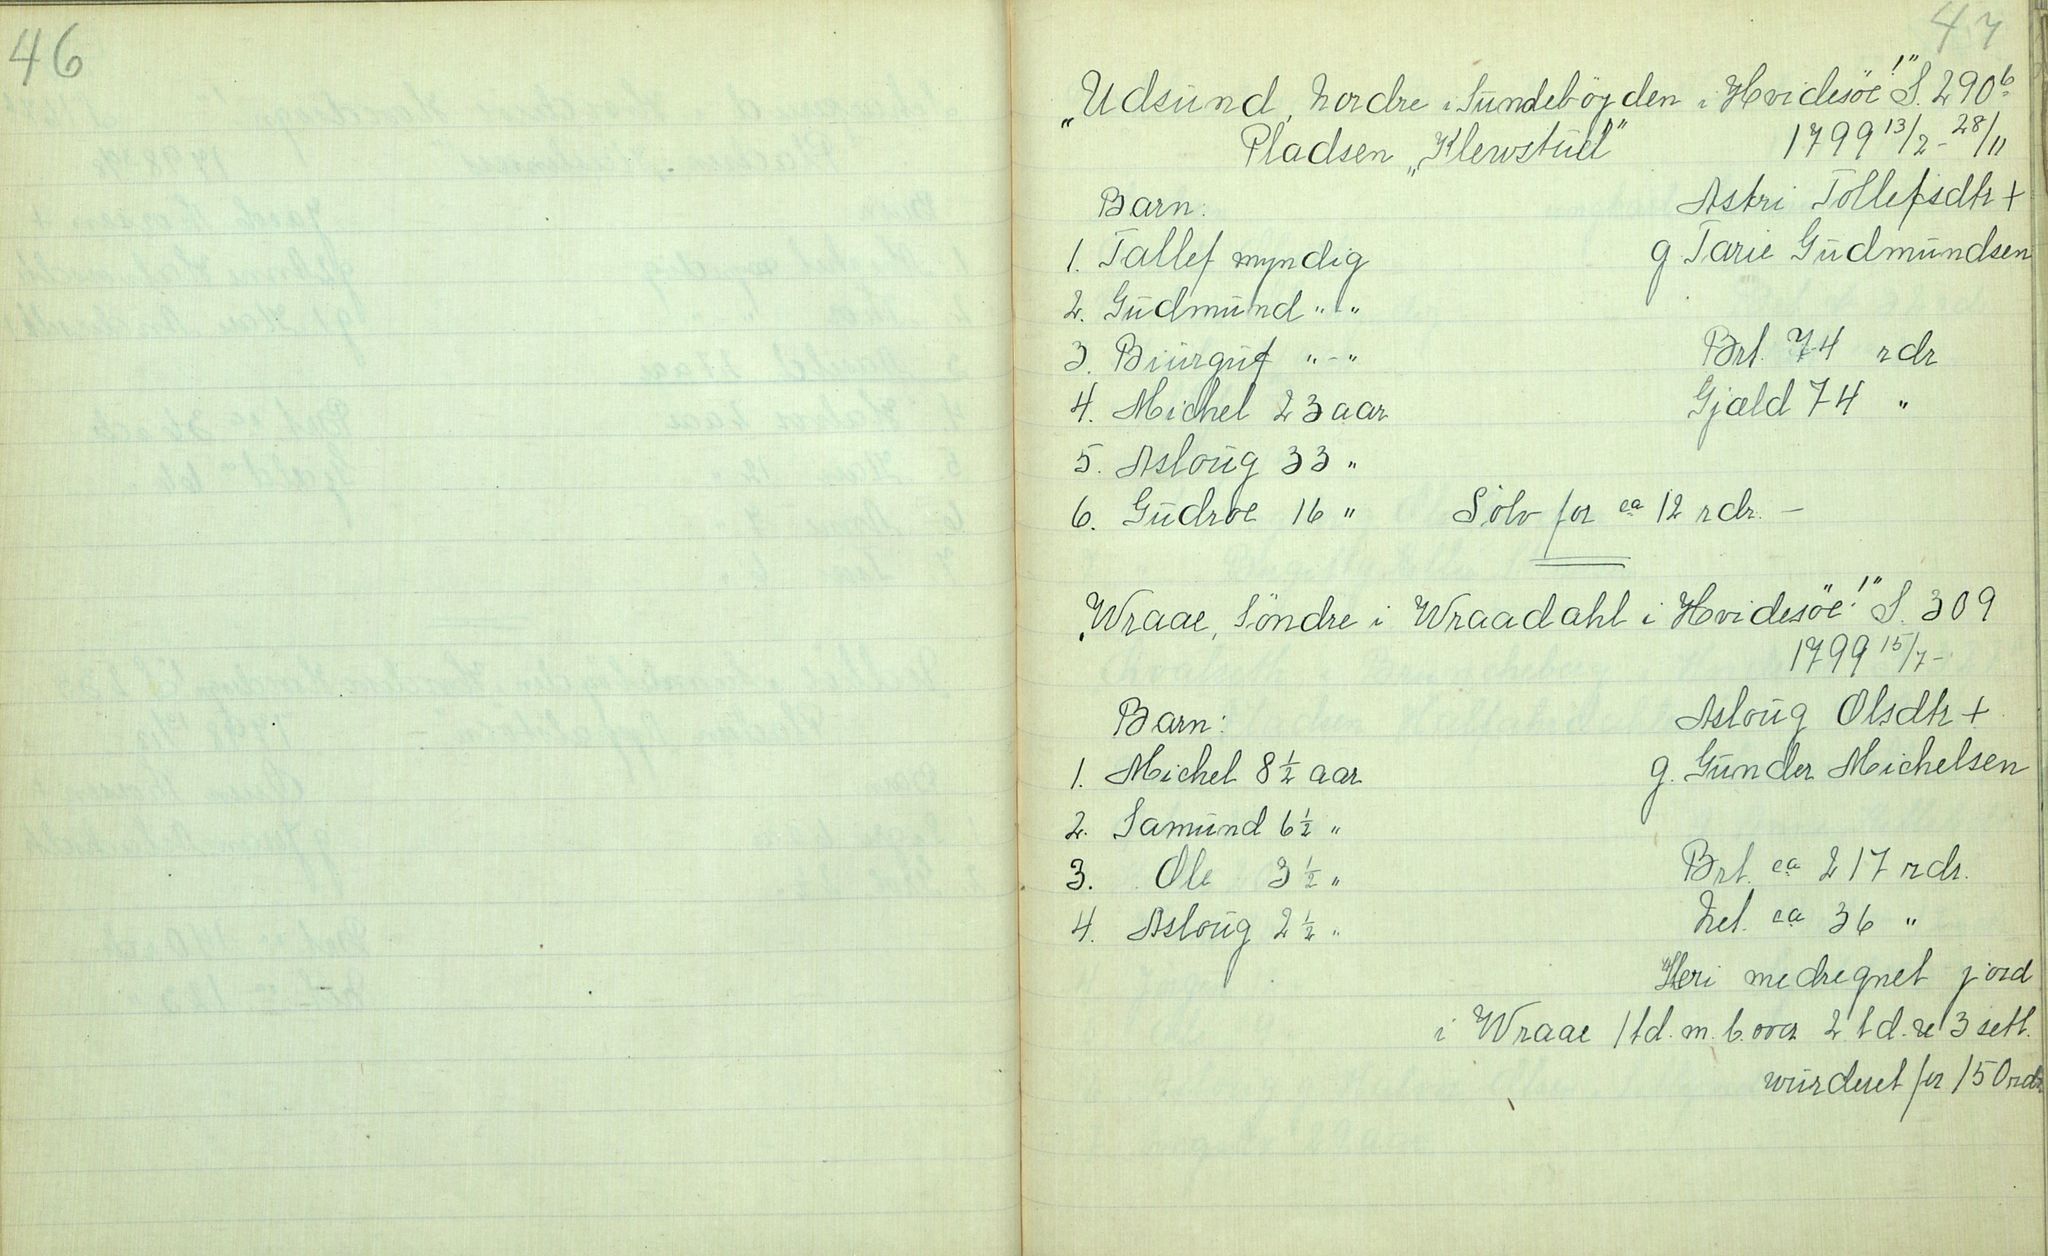 46
47
„Udsund, Nordre i Sundebøyden i Hvidesöe!" S. 290b
Pladsen „Klewstuel" 1799 13/2 - 28/11
Barn: Astri Tollefsdtr +
1. Tallef myndig g. Tarie Gudmundsen
2. Gudmund " - "
3. Biurguf " - " Brt. 74 rdr
4. Michel 23 aar Gjæld 74 "
5. Asloug 33 "
6. Gudroe 16 " Sølv for ca 12 rdr. -
„Wraae, Söndre i Wraadahl i Hvidesöe!" S. 309
1799 15/7 -
Barn: Asloug Olsdtr +
1. Michel 8 1/2 aar g. Gunder Michelsen
2. Samund 6 1/2 "
3. Ole 3 1/2 " Brt. ca 217 rdr.
4. Asloug 2 1/2 " Net. ca 36 "
Heri medregnet jord
i Wraae 1 td. m. b. over 2 td. 3 setl.
wurderet for 150 rdr